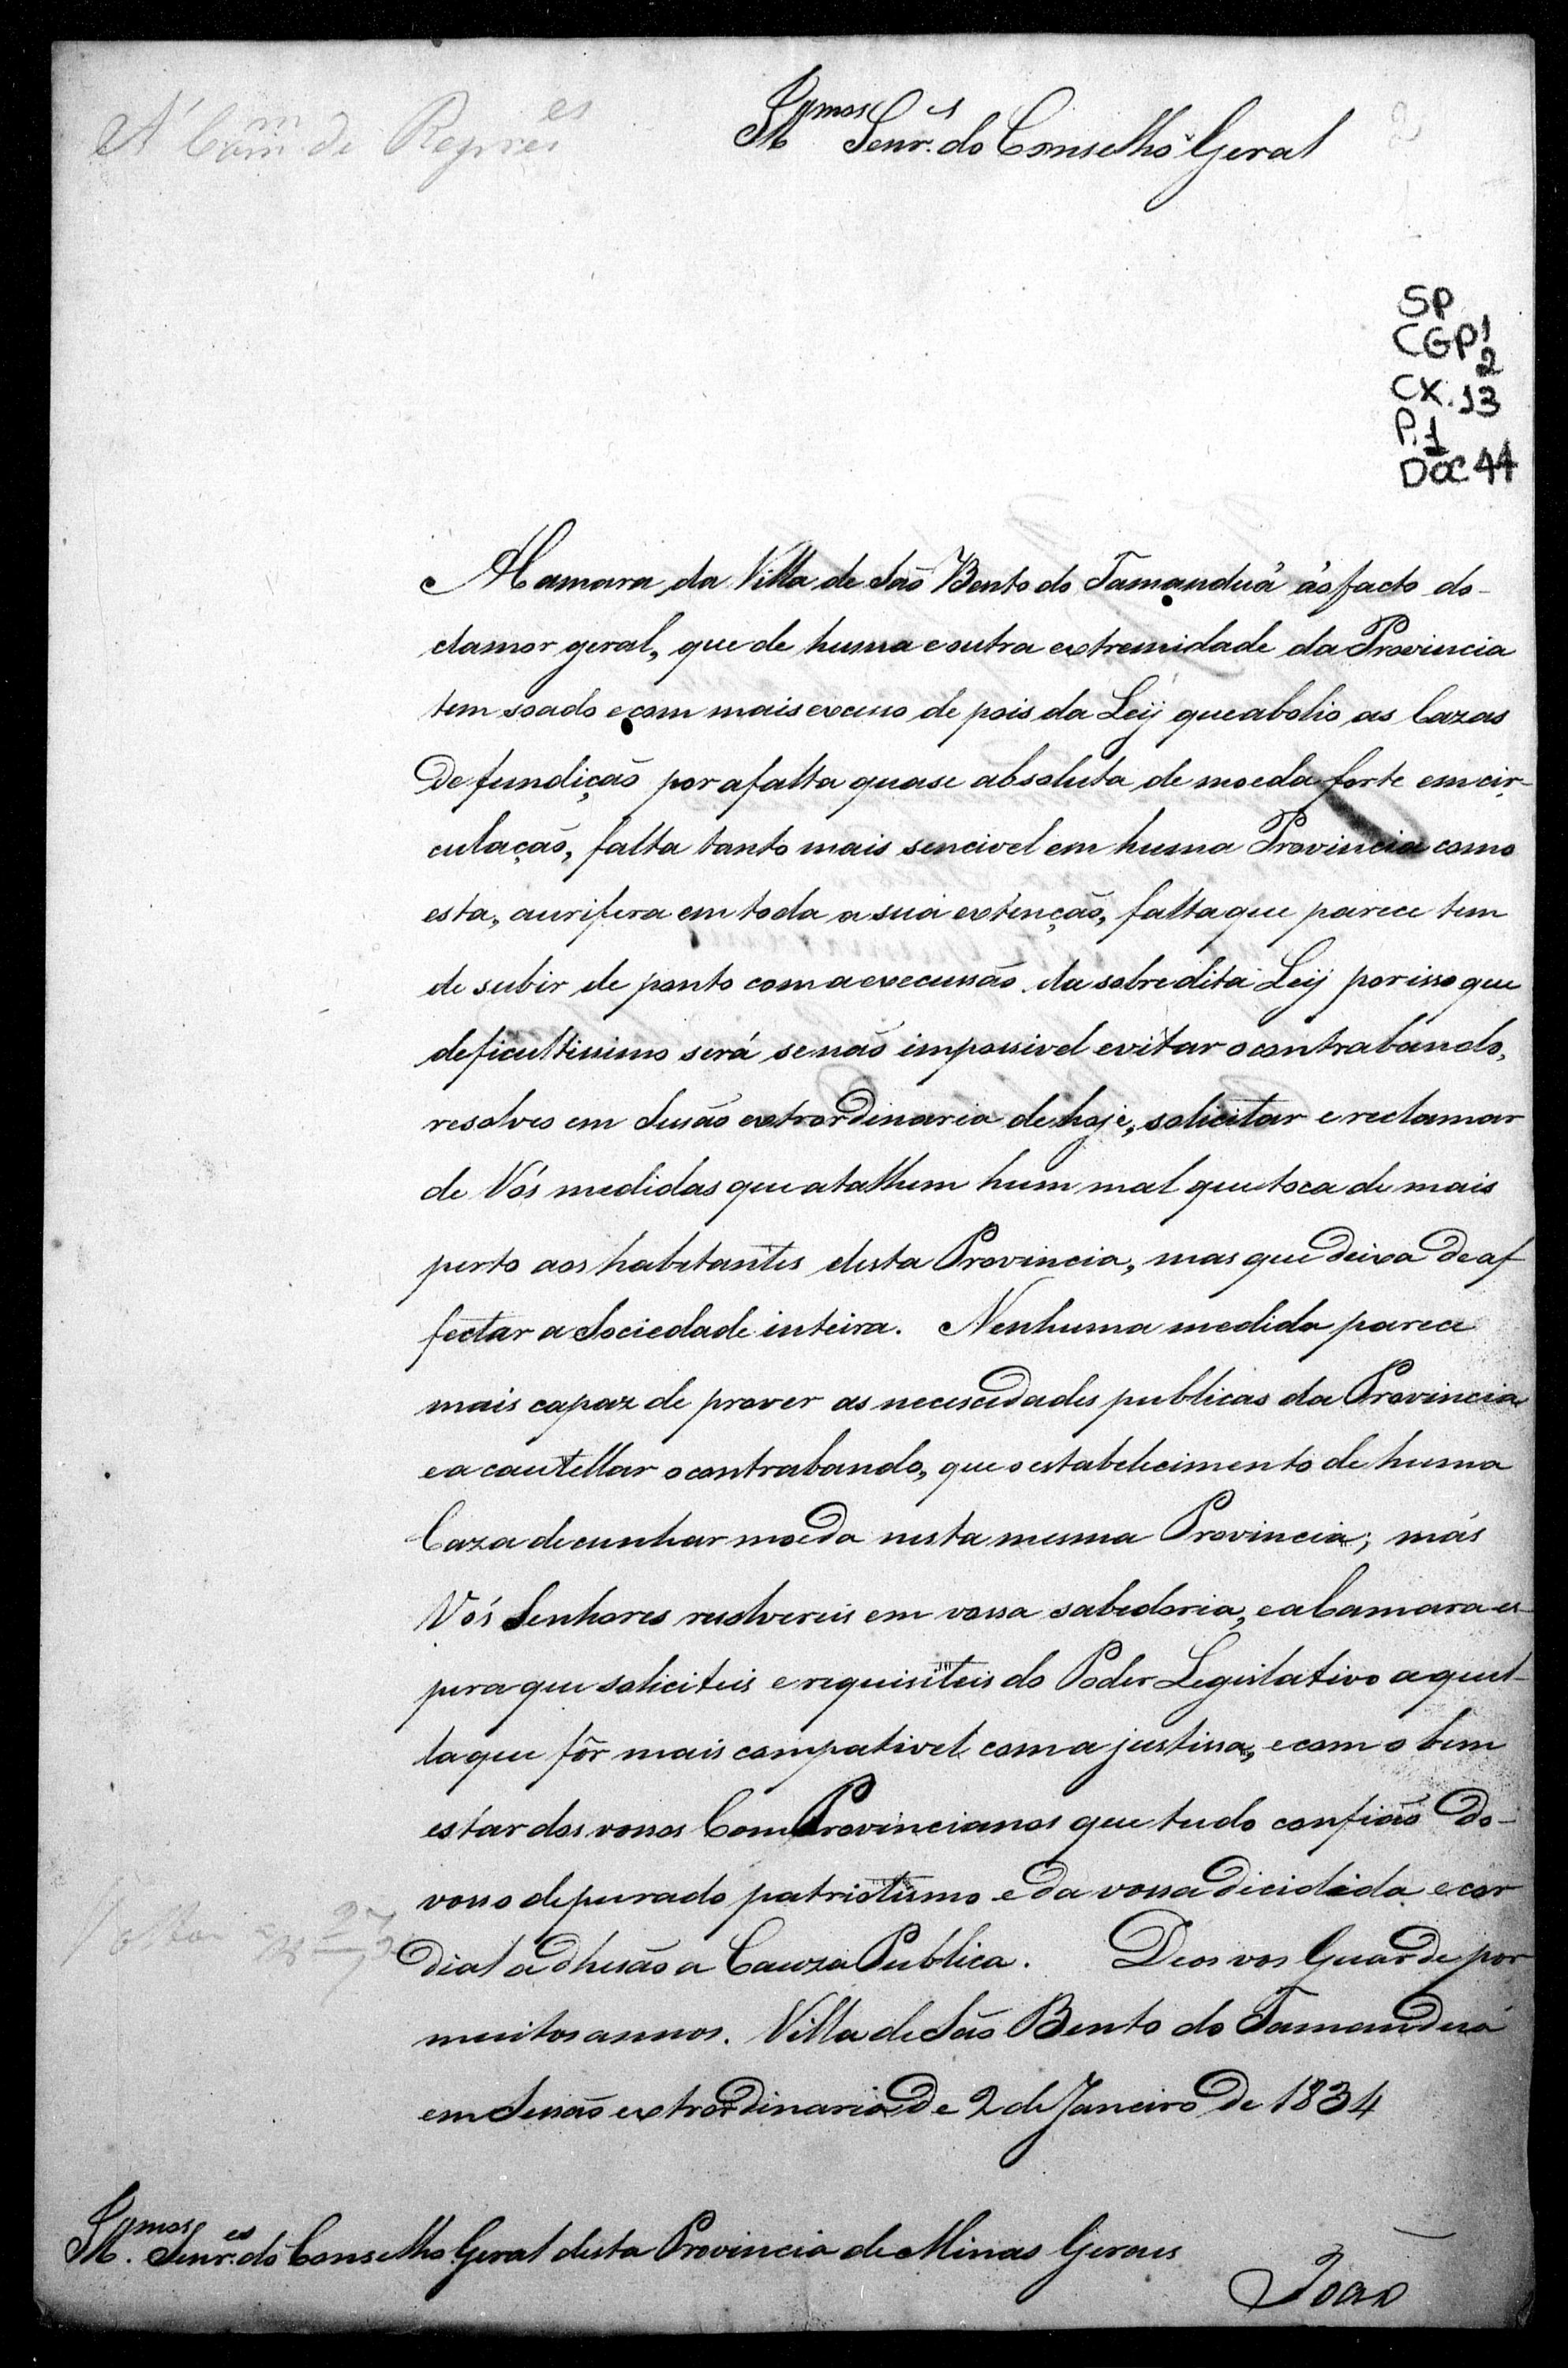 A' Comm de Repres.es
Ill.mos Senr.es do Conselho Geral
SP
CGP 1
2
CX. 13
P. 1
DOC 44
A Camara da Villa de São Bento do Tamanduá ao facto do
clamor geral, que de huma e outra extremidade da Provincia
tem soado e com mais excesso de pois da Leij que abolio as Cazas
de fundição por a falta quase absoluta de moeda forte em cir-
culação, falta tanto mais sencivel em huma Provincia como
esta, aurifera em toda a sua extenção, falta que parece tem
de subir de ponto com a execussão da sobredita Leij por isso que
deficultissimo será se não impossivel evitar o contrabando,
resolveo em Sessão extrordinaria de hoje, solicitar e reclamar
de Vós medidas que atalhem hum mal que toca de mais
perto aos habetantes desta Provincia, mas que deixa de af
fectar a Sociedade inteira. Nenhuma medida parece
mais capaz de prover as necescidades publicas da Provincia
e a cautellar o contrabando, que o estabelecimento de huma
Caza de cunhar moeda nesta mesma Provincia; más
Vós Senhores resolvereis em vossa sabedoria, e a Camara es-
pera que soliciteis e requisiteis do Poder Legislativo aquel-
la que fôr mais compativel com a justissa, e com o bem
estar dos vossos ComProvincianos que tudo confião do
vosso depurado patriotismo e da vossa dicidida e cor
dial adhesão a Cauza Publica. Deos vos Guarde por
muitos annos. Villa de São Bento do Tamanduá
em Sessão extrordinaria de 2 de Janeiro de 1834
Ill.mos Senr.es do Conselho Geral desta Provincia de Minas Geraes
João